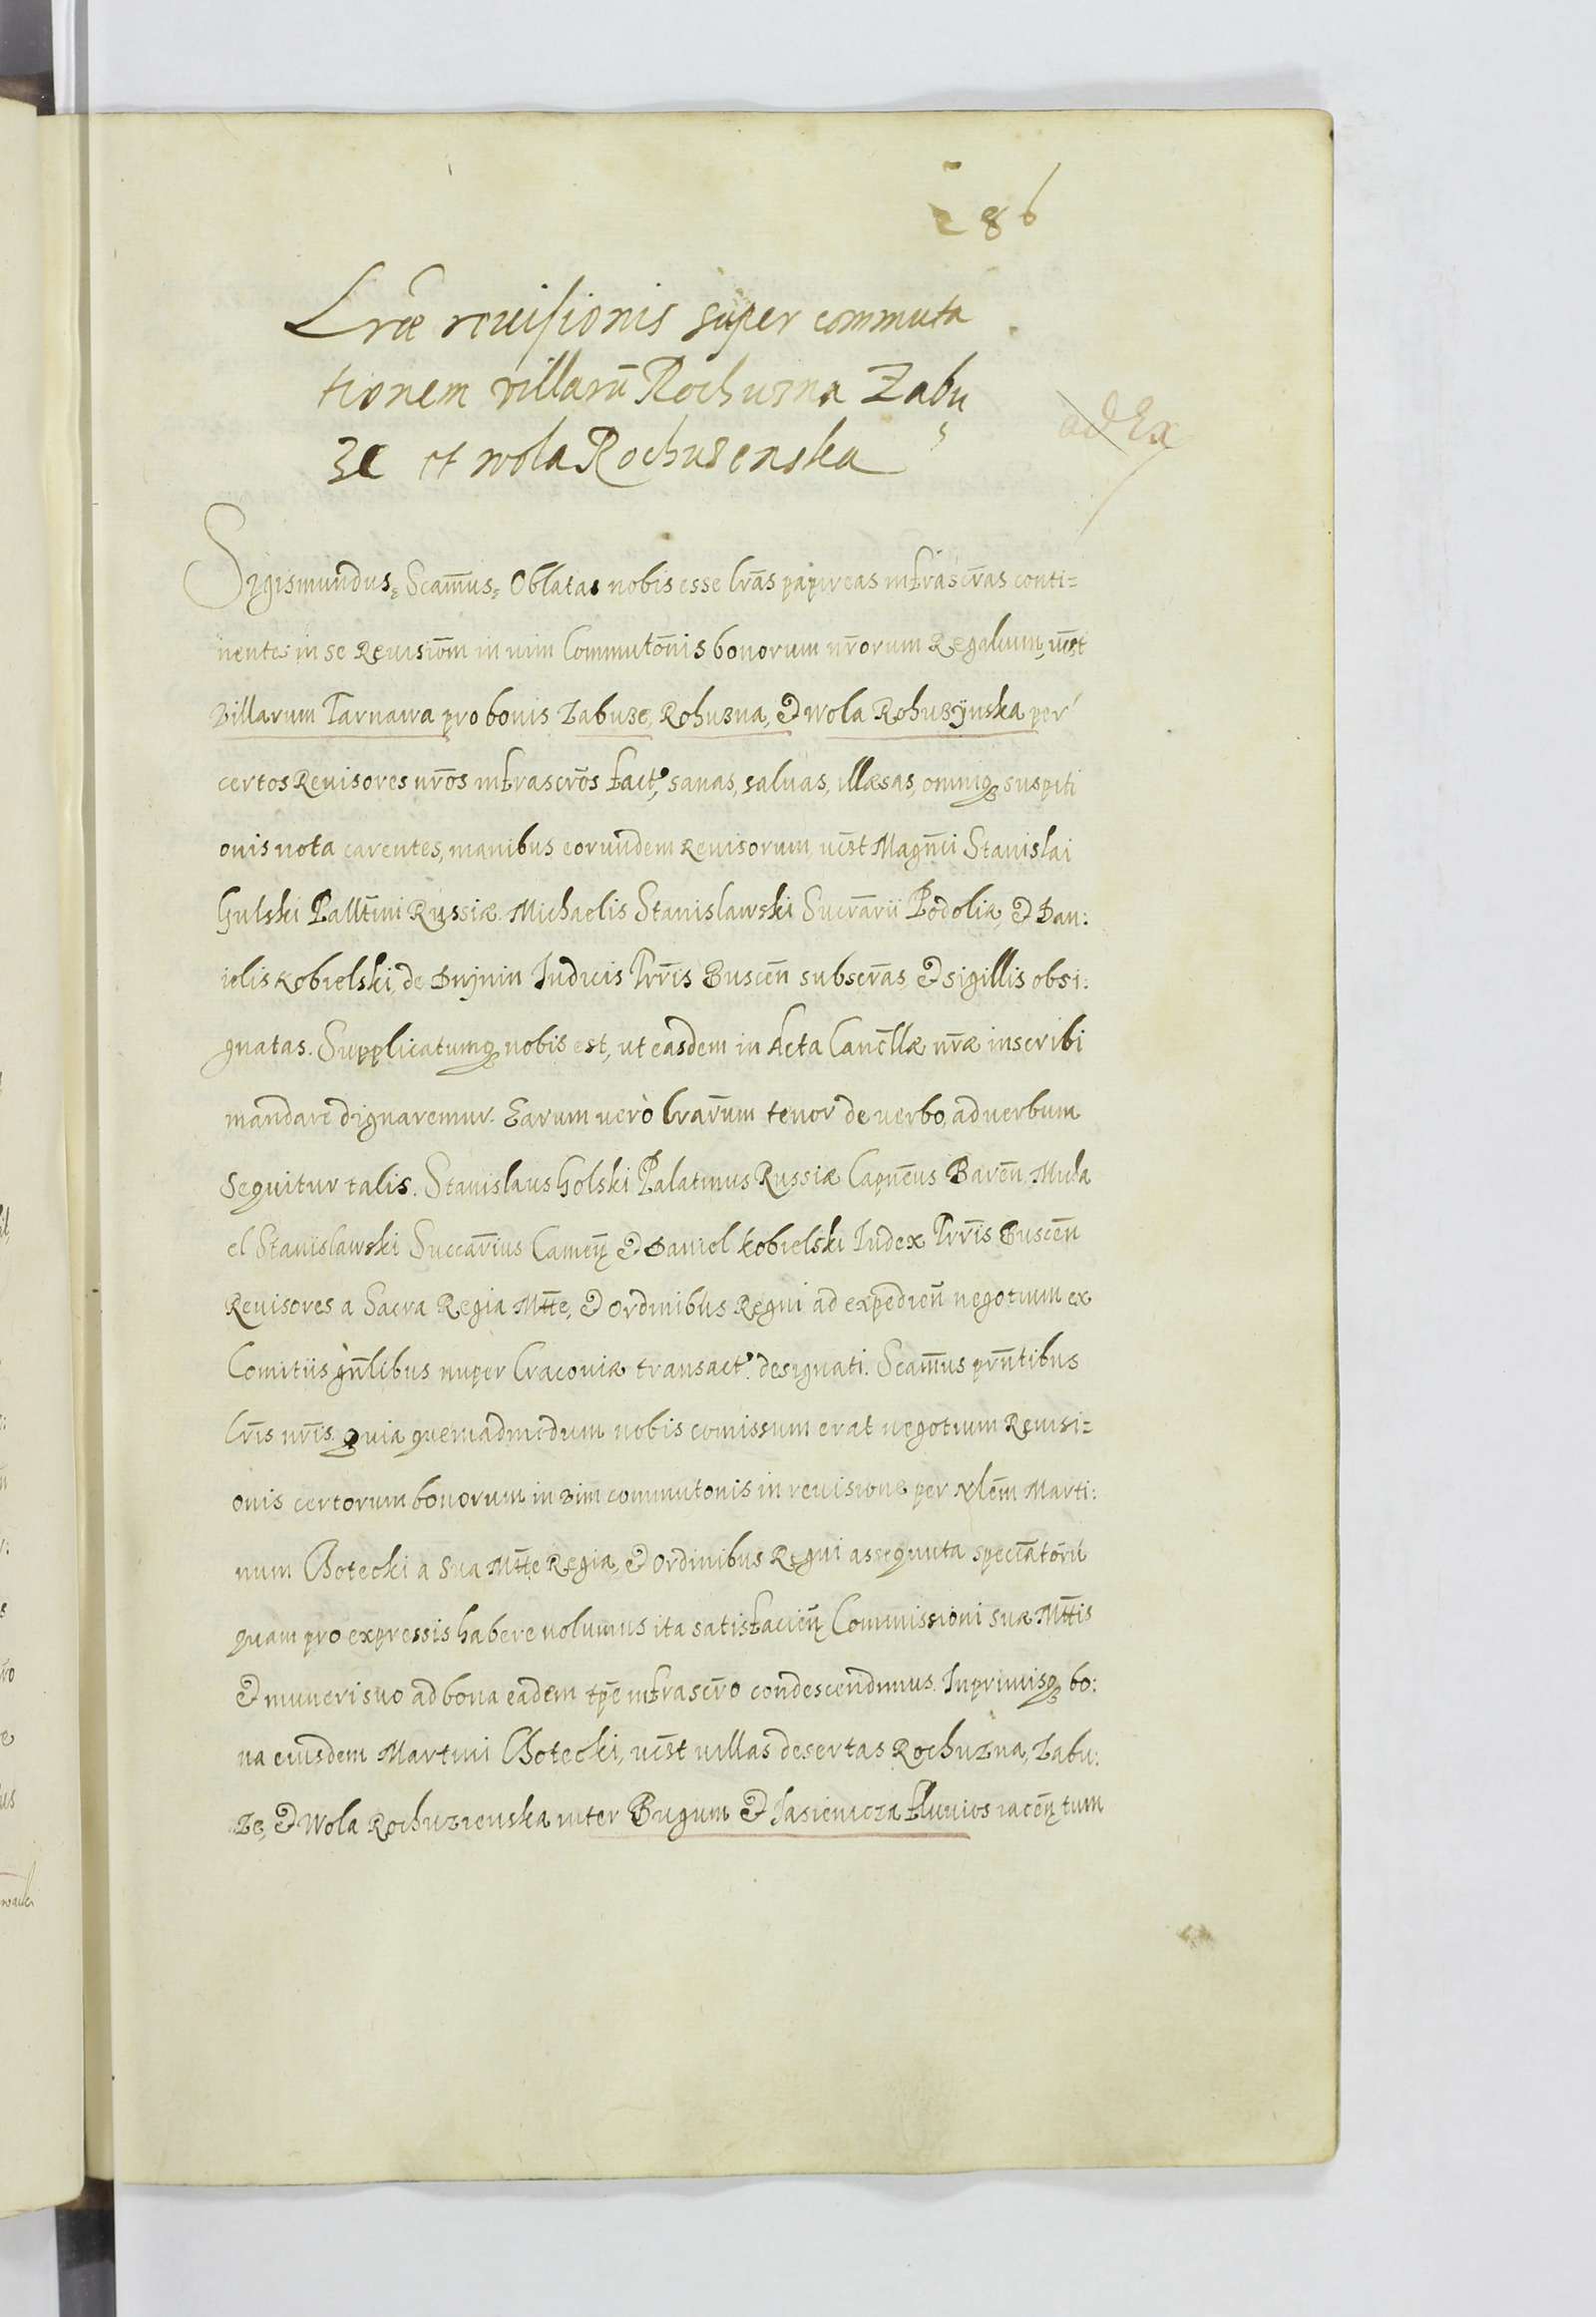 286
Lr̃æ reuisionis super commuta
tionem villarū Rochuzna Zabu
ze et wola Rochuzenska
ad Ex
Sigismundus, Scam̃us, Oblatas nobis esse lr̃as papireas infrascr̃as conti=
nentes in se Reuisiom̃ in uim Commutõnis bonorum nr̃orum Regalium, uc̃st
Villarum Tarnawa pro bonis Zabuze, Rohuzna, & Wola Rohuzÿnska per
certos Reuisores nr̃os infrascr̃os fact, sanas, saluas, illæsas, omniq suspiti
onis nota carentes, manibus eorundem Reuisorum, uc̃st Magñci Stanislai
Gulski Pallt̃ini Russiæ. Michaelis Stanislawski Succr̃arii Podoliæ, & Dan:
ielis Kobielski, de Drÿnin Iudicis Trr̃is Buscen̄ subscr̃as, & sigillis obsi:
gnatas. Supplicatumq nobis est, ut easdem in Acta Canc̃llæ nr̃æ inscribi
mandare dignaremur. Earum uerò lrar̃um tenor de uerbo, ad uerbum
sequitur talis. Stanislaus Golski Palatinus Russiæ Capñeus Baren̄, Micha
el Stanislawski Succar̃ius Camen̄ & Daniel Kobielski Iudex Trr̃is Buscen̄
Reuisores a Sacra Regia Mtt̃e, & Ordinibus Regni ad expedien̄ negotium ex
Comitiis gñlibus nuper Cracouiæ transact. designati. Scam̃us prñtibus
lr̃is nr̃is. quia quemadmodum nobis comissum erat negotium Reuisi=
onis certorum bonorum in vim commutonis in reuisione per Nlem̃ Marti:
num Chotecki a Sua Mtt̃e Regia, & Ordinibus Regni assequuta spectãtorũ
quam pro expressis habere uolumus ita satisfacien̄ Commissioni suæ Mtt̃is
& muneri suo ad bona eadem tpẽ infrascr̃o condescendimus. Inprimisq bo:
na eiusdem Martini Chotecki, uc̃st uillas desertas Rochuzna, Zabu:
ze, & Wola Rochuzienska inter Bugum & Jasienicza fluuios iacen̄, tum